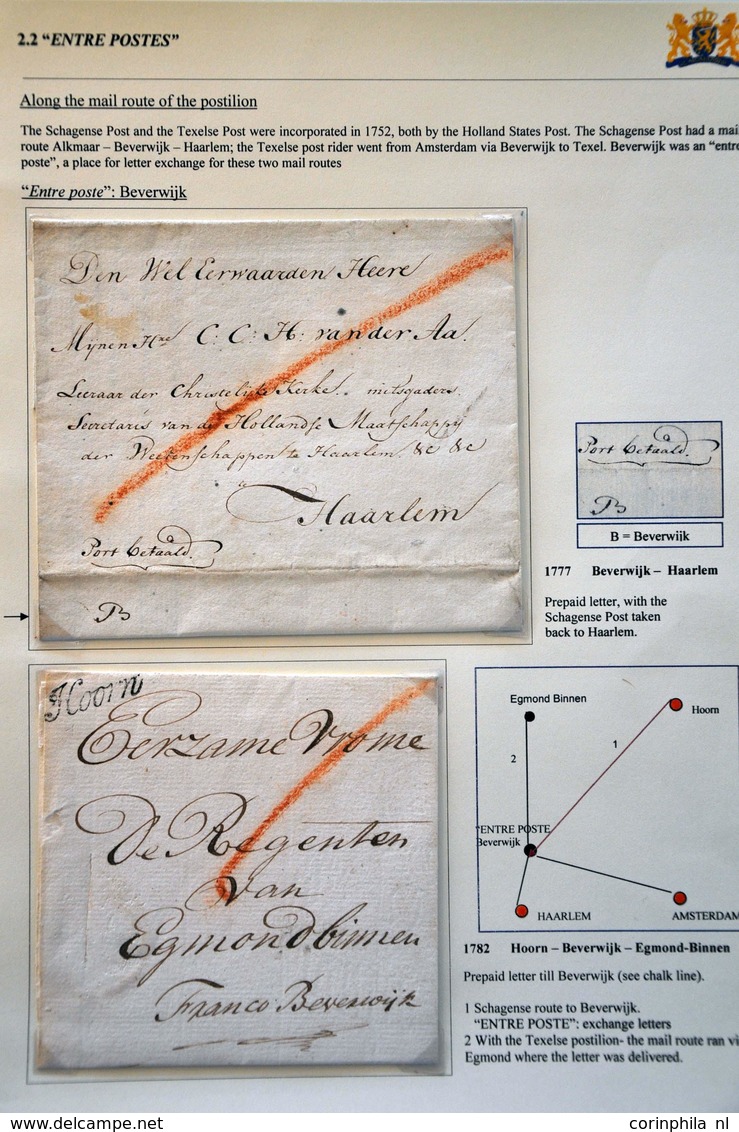 2.2 “ENTRE POSTES”
Along the mail route of the postilion
The Schagense Post and the Texelse Post were incorporated in 1752, both by the Holland States Post. The Schagense Post had a mai
route Alkmaar – Beverwijk – Haarlem; the Texelse post rider went from Amsterdam via Beverwijk to Texel. Beverwijk was an “entre
poste”, a place for letter exchange for these two mail routes
“Entre poste”: Beverwijk
Den Wel Eerwaarden Heere
Mynen Hre C: C: H: van der Aa.
Leeraar der Christelijke Kerke.. mitsgaders.
Secretaris van de Hollandse Maatschappy
der Weetenschappen te Haarlem. &c &c
a
Haarlem
Port betaald.
B
Port betaald.
B
B = Beverwijk
1777 Beverwijk – Haarlem
Prepaid letter, with the
Schagense Post taken
back to Haarlem.
Hoorn
Eerzame Vrome
De Regenten
van
Egmond binnen
Franco Beverwijk
Egmond Binnen
Hoorn
1
2
“ENTRE POSTE
Beverwijk
HAARLEM
AMSTERDAM
1782 Hoorn – Beverwijk – Egmond-Binnen
Prepaid letter till Beverwijk (see chalk line).
1 Schagense route to Beverwijk.
“ENTRE POSTE”: exchange letters
2 With the Texelse postilion- the mail route ran vi
Egmond where the letter was delivered.
corinphila nl